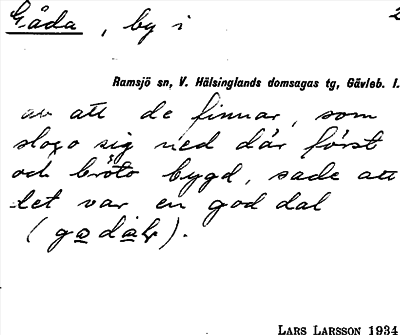 Gåda, by i 2
Ramsjö sn, V. Hälsinglands domsagas tg, Gävleb. l.
av att de finnar, som
slogo sig ned där först
och bröto bygd, sade att
det var en god dal
(
LARS LARSSON 1934